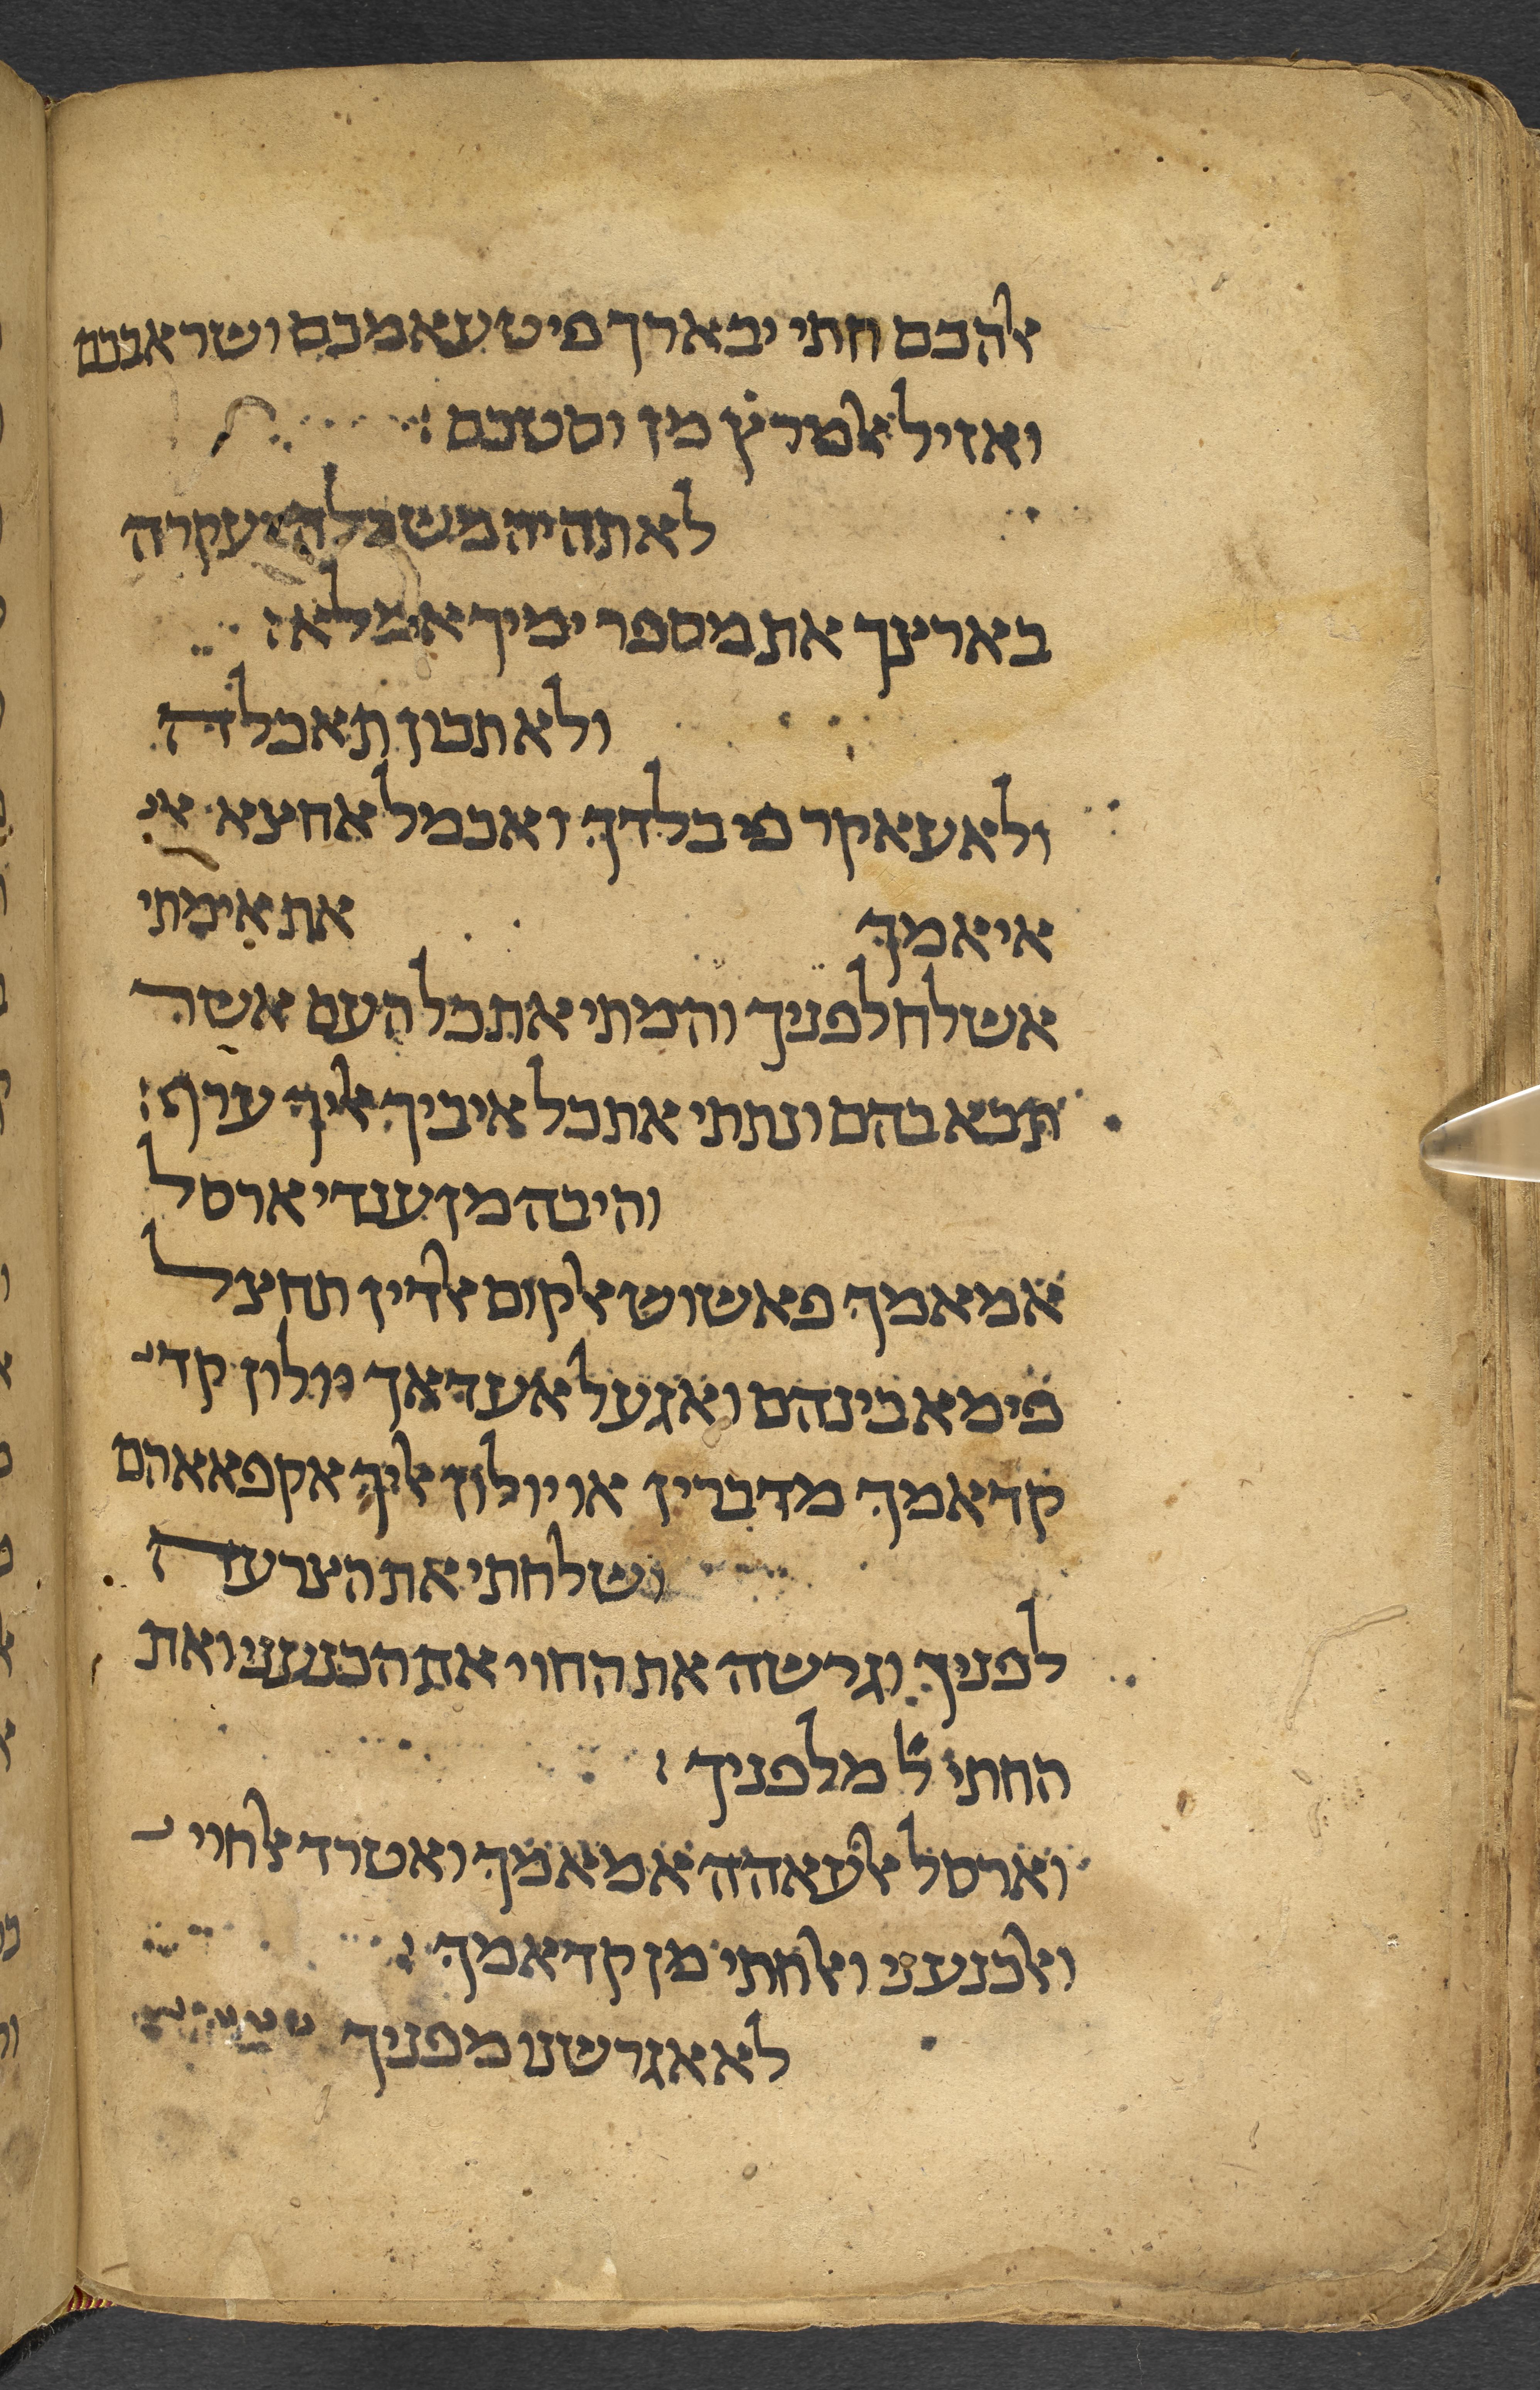 אלהכם חתי יבארך פי טעאמכם ושראבכם
ואזיל אלמרץ̇ מן וסטכם:
לא תהיה משכלה ועקרה
בארצך את מספר ימיך אמלא:
ולא תכון תאכלה
ולא עאקר פי בלדך ואכמל אחצא אי
איאמך את אימתי
אשלח לפניך והמתי את כל העם אשר
תבא בהם ונתתי את כל איביך אליך ערף:
והיבה מן ענדי ארסל
אמאמך פאשוש אלקום אלדין תחצל
פימא בינהם ואגעל אעדאך יולון קד
קדאמך מדברין או יולון אליך אקפאאהם
ושלחתי את הצרעה
לפניך וגרשה את החוי את הכנעני ואת
החתי מלפניך:
וארסל אלעאהה אמאמך ואטרד אלחוי
ואלכנעני ואלחתי מן קדאמך:
לא אגרשנו מפניך